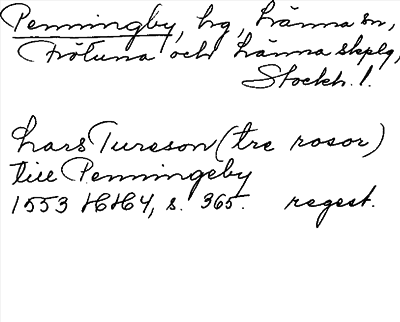 Penningby, hg, Länna sn,
Frötuna och Länna skplg,
Stockh. l.
Lars Tureson (tre rosor)
till Penningeby
1553 HH4, s. 365. regest.